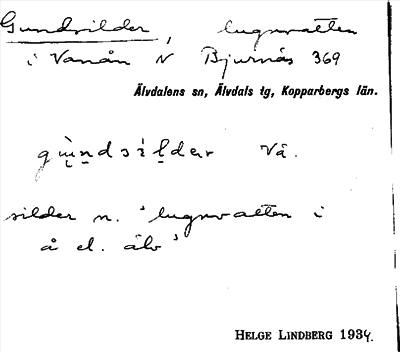 Gundsilder, lugnvatten
i Vanån N Bjurnäs 369
Älvdalens sn, Älvdals tg, Kopparbergs län.
Vå.
silder n. 'lugnvatten i
å el. älv'
HELGE LINDBERG 1934.